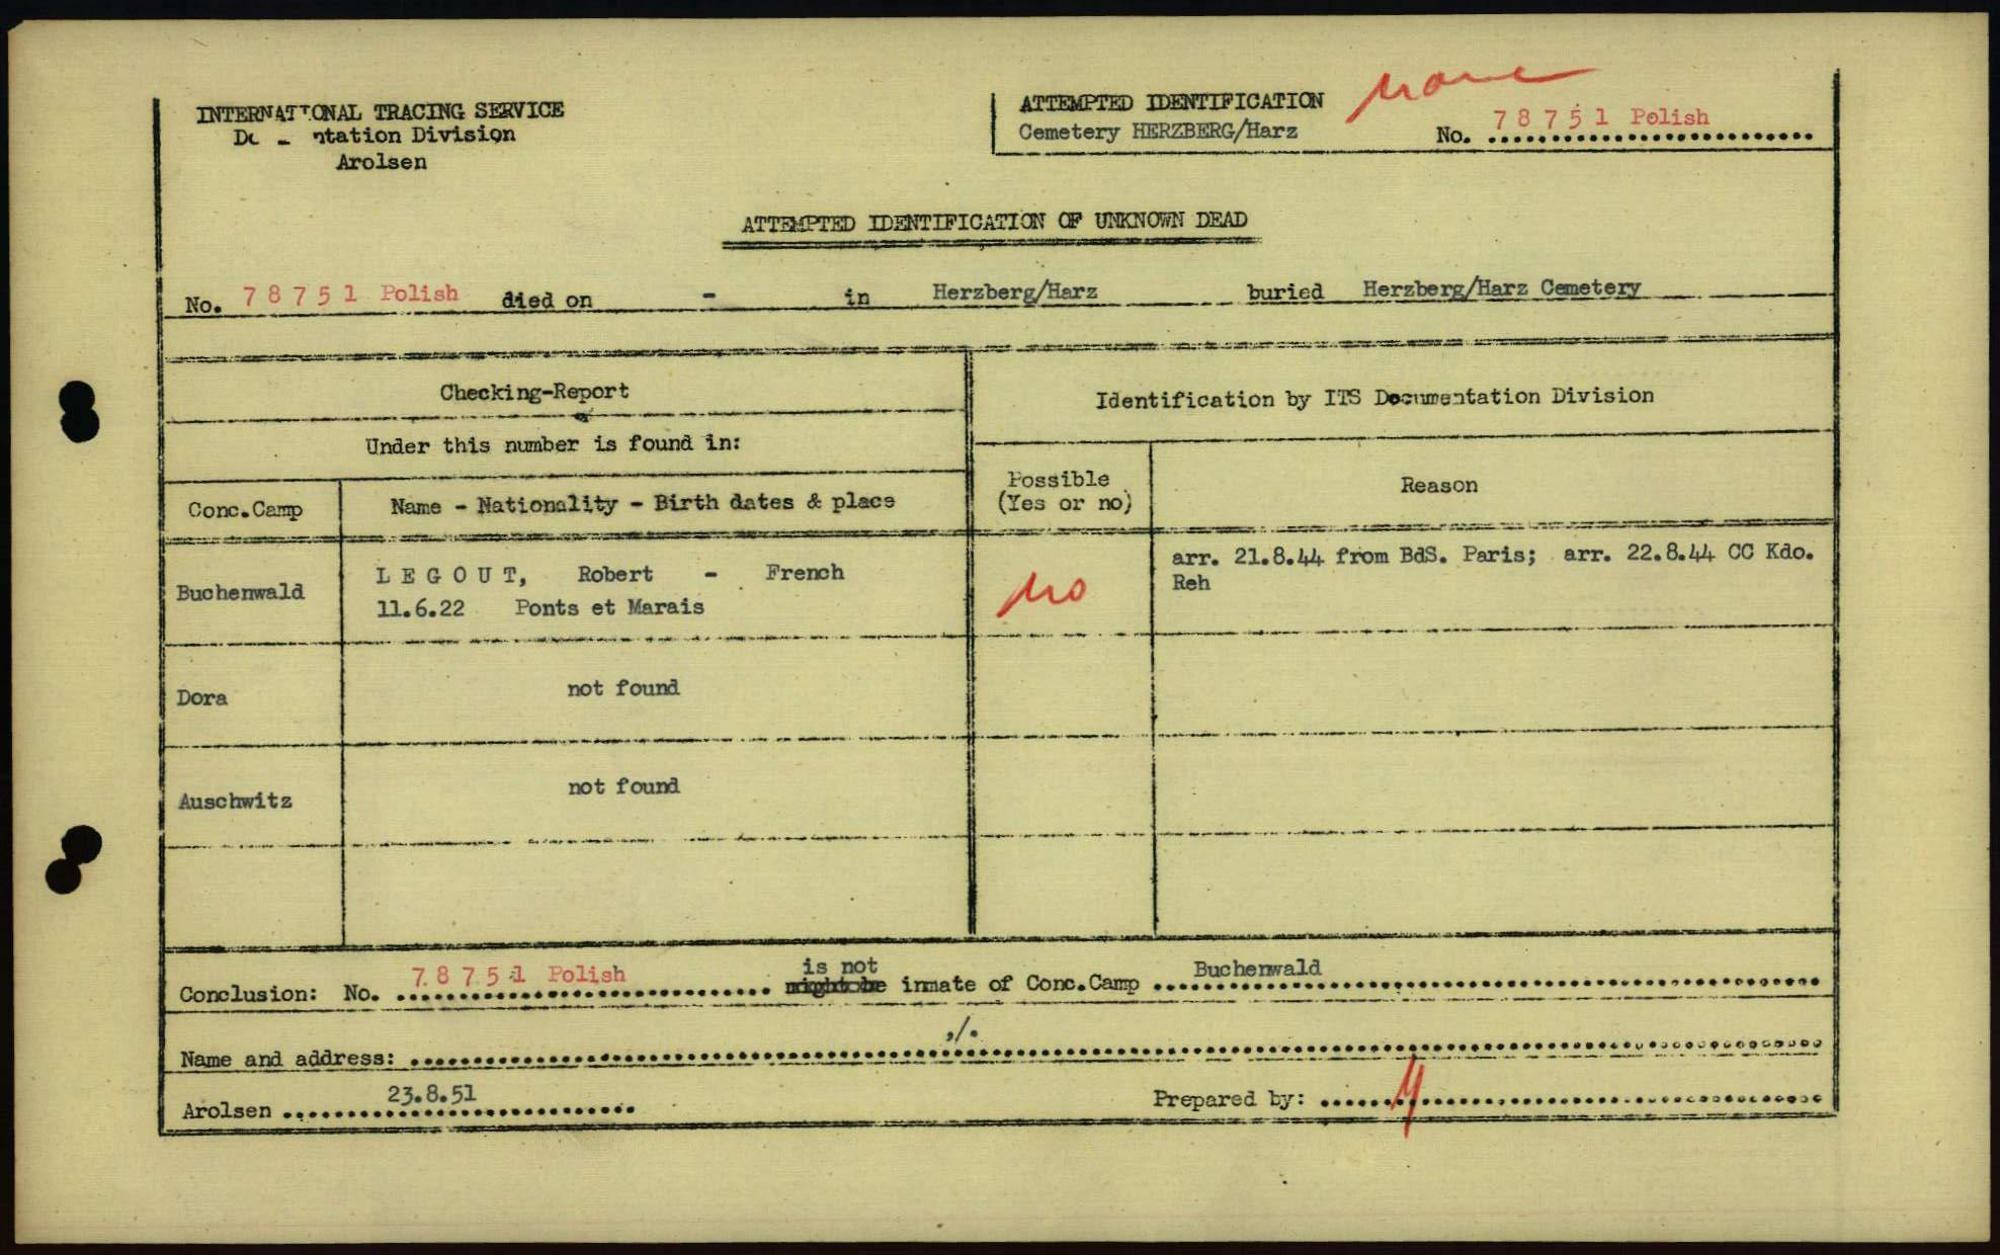 INTERNATIONAL TRACING SERVICE
ntation Division
Arolsen
ATTEMPTED IDENTIFICATION
Cemetery HERZBERG/Harz
none
No. 7 8 7 5 1 Polish
ATTEMPTED IDENTIFICATION OF UNKNOWN DEAD
No. 7 8 7 5 1 Polish died on - in Herzberg/Harz buried Herzberg/Harz Cemetery
Checking-Report
Identification by ITS Documentation Division
Under this number is found in:
Conc.Camp
Name - Nationality - Birth dates & place
Possible
(Yes or no)
Reason
Buchenwald
L E G O U T, Robert - French
11.6.22 Ponts et Marais
no
arr. 21.8.44 from BdS. Paris; arr. 22.8.44 CC Kdo.
Reh
Dora
not found
Auschwitz
not found
is not
Conclusion: No. 7 8 7 5 1 Polish might be inmate of Conc.Camp Buchenwald
Name and address: ./.
Arolsen 23.8.51
Prepared by: